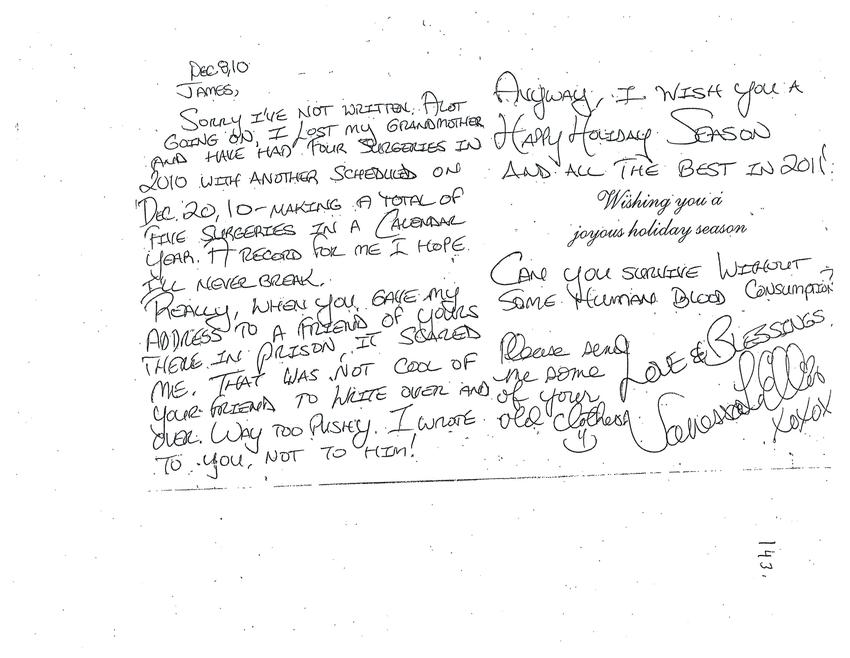 DEC 8, 10
JAMES,
SORRY I'VE NOT WRITTEN. ALOT
GOING ON, I LOST MY GRANDMOTHER
AND HAVE HAD FOUR SURGERIES IN
2010 WITH ANOTHER SCHEDULED ON
DEC. 20, 10 - MAKING A TOTAL OF
FIVE SURGERIES IN A CALENDAR
YEAR. A RECORD FOR ME I HOPE
I'LL NEVER BREAK.
REALLY, WHEN YOU GAVE MY
ADDRESS TO A FRIEND OF YOURS
THERE IN PRISON, IT SCARED
ME. THAT WAS NOT COOL OF
YOUR FRIEND TO WRITE OVER AND
OVER. WAY TOO PUSHY. I WROTE
TO YOU, NOT TO HIM!
ANYWAY, I WISH YOU A
HAPPY HOLIDAY SEASON
AND ALL THE BEST IN 2011!
Wishing you a
joyous holiday season
CAN YOU SURVIVE WITHOUT
SOME HUMAN BLOOD CONSUMPTION?
Please send
me some
of your
old clothes!
LOVE & BLESSINGS,
Vanessa
XOXOX
143.